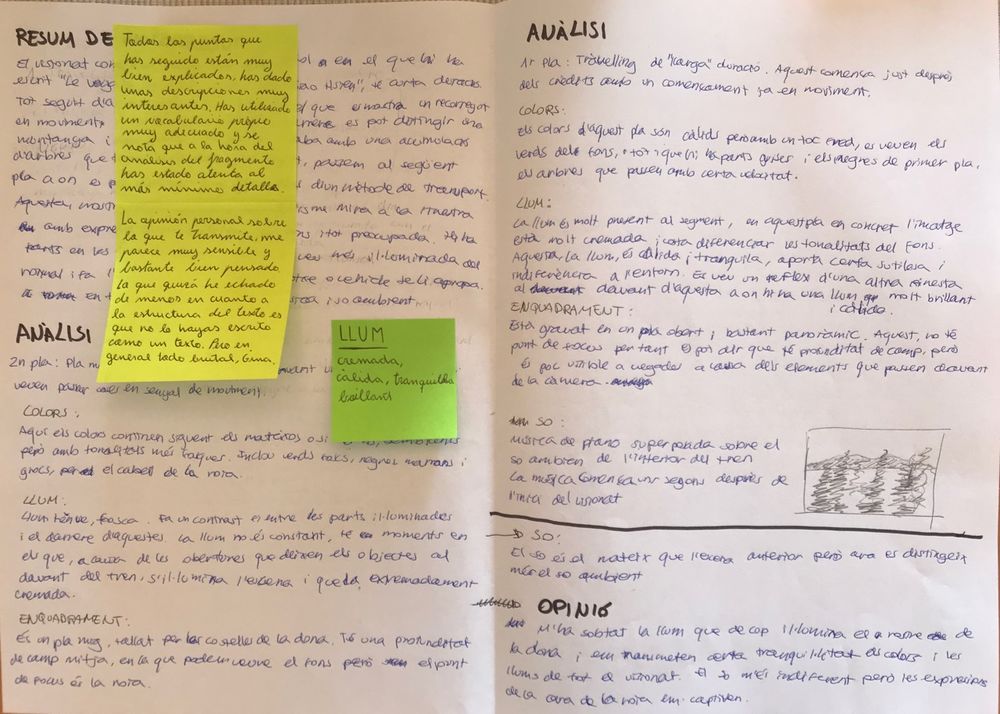 RESUM DE
El visionat con
escrit "Le voya
Tot seguit d'a
en moviment
muntanya i
d'arbres que
pla a on es p
Aquesta, most
amb expre
en les
normal i fa ll
en t
Todos los puntos que
has seguido están muy
bien explicados, has dado
unas descripciones muy
interesantes. Has utilizado
un vocabulario propio
muy adecuado y se
nota que a la hora del
análisis del fragmento
has estado atenta al
más mínimo detalle.
La opinión personal sobre
lo que te transmite, me
parece muy sensible y
bastante bien pensado
lo que quizá he echado
de menos en cuanto a
la estructura del texto es
que no lo hayas escrito
como un texto. Pero en
general todo brutal, Gina.
en el que hi ha
de curta durada.
que es mostra un recorregut
es pot distingir una
amb una acumulació
passem al següent
d'un mètode de transport.
mira a la nostra
i tot preocupada. Hi ha
més il·luminada del
so ambient
ANÀLISI
2n pla: Pla m
veuen passar coses en senyal de moviment.
COLORS:
Aquí els colors continen siguent els mateixos o si
però amb tonalitats més fosques. Inclou verds foscs, negres marrons i
grocs, per el cabell de la noia.
LLUM
cremada,
càlida, tranquil·la
brillant
LLUM:
Llum tènue, fosca. Fa un contrast entre les parts il·luminades
i el darrere d'aquestes la llum no és constant, te moments en
els que, a causa de les obertures que deixen els objectes al
davant del tren, s'il·lumina l'escena i queda extremadament
cremada.
ENQUADRAMENT:
És un pla mig, tallat per les costelles de la dona. Té una profunditat
de camp mitja, en la que podem veure el fons però el punt
de focus és la noia.
ANÀLISI
1r pla: Tràvelling de "llarga" duració. Aquest comença just després
dels crèdits amb un començament ja en moviment.
COLORS:
Els colors d'aquest pla són càlids però amb un toc fred, es veuen els
verds del fons, tot i que hi ha parts grises i els negres de primer pla,
els arbres que passen amb certa velocitat.
LLUM:
La llum és molt present al segment, en aquest pla en concret l'imatge
està molt cremada i costa diferenciar les tonalitats del fons.
Aquesta llum, és càlida i tranquila, aporta certa sutilesa i
indiferència a l'entorn. Es veu un reflexe d'una altra finestra
al davant d'aquesta a on hi ha una llum molt brillant
i càlida.
ENQUADRAMENT:
Està gravat en un pla obert i bastant panoràmic. Aquest, no té
punt de focus per tant es pot dir que té profunditat de camp, però
és poc visible a vegades a causa dels elements que passen davant
de la càmera
SO:
Música de piano superposada sobre el
so ambien de l'interior del tren
La música comença uns segons després de
l'inici del visionat
SO:
El so és el mateix que l'escena anterior però ara es distingeix
més el so ambient
OPINIÓ
M'ha sobtat la llum que de cop il·lumina el rostre de
la dona i em transmeten certa tranquil·litat els colors i les
llums de tot el visionat. El so més indiferent però les expressions
de la cara de la noia em captiven.